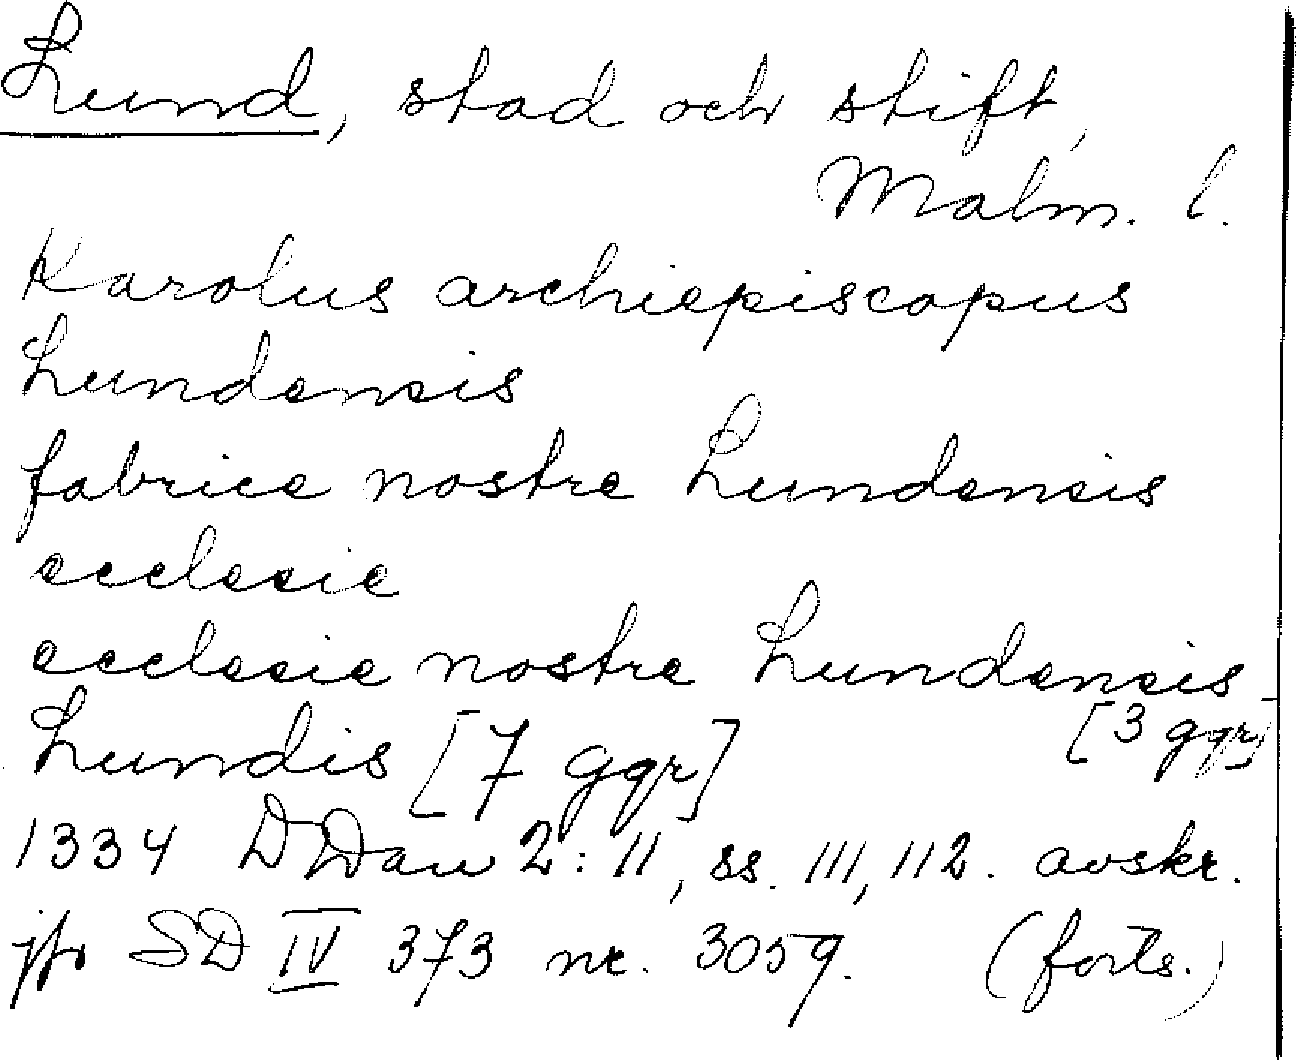 Lund, stad och stift,
Malm. l.
Karolus archiepiscopus
Lundensis
fabrice nostre Lundensis
ecclesie
ecclesie nostre Lundensis
[3 ggr]
Lundis [7 ggr]
1334 DDan 2: 11, ss. 111, 112. avskr.
jfr SD IV 373 nr. 3059. (forts.)